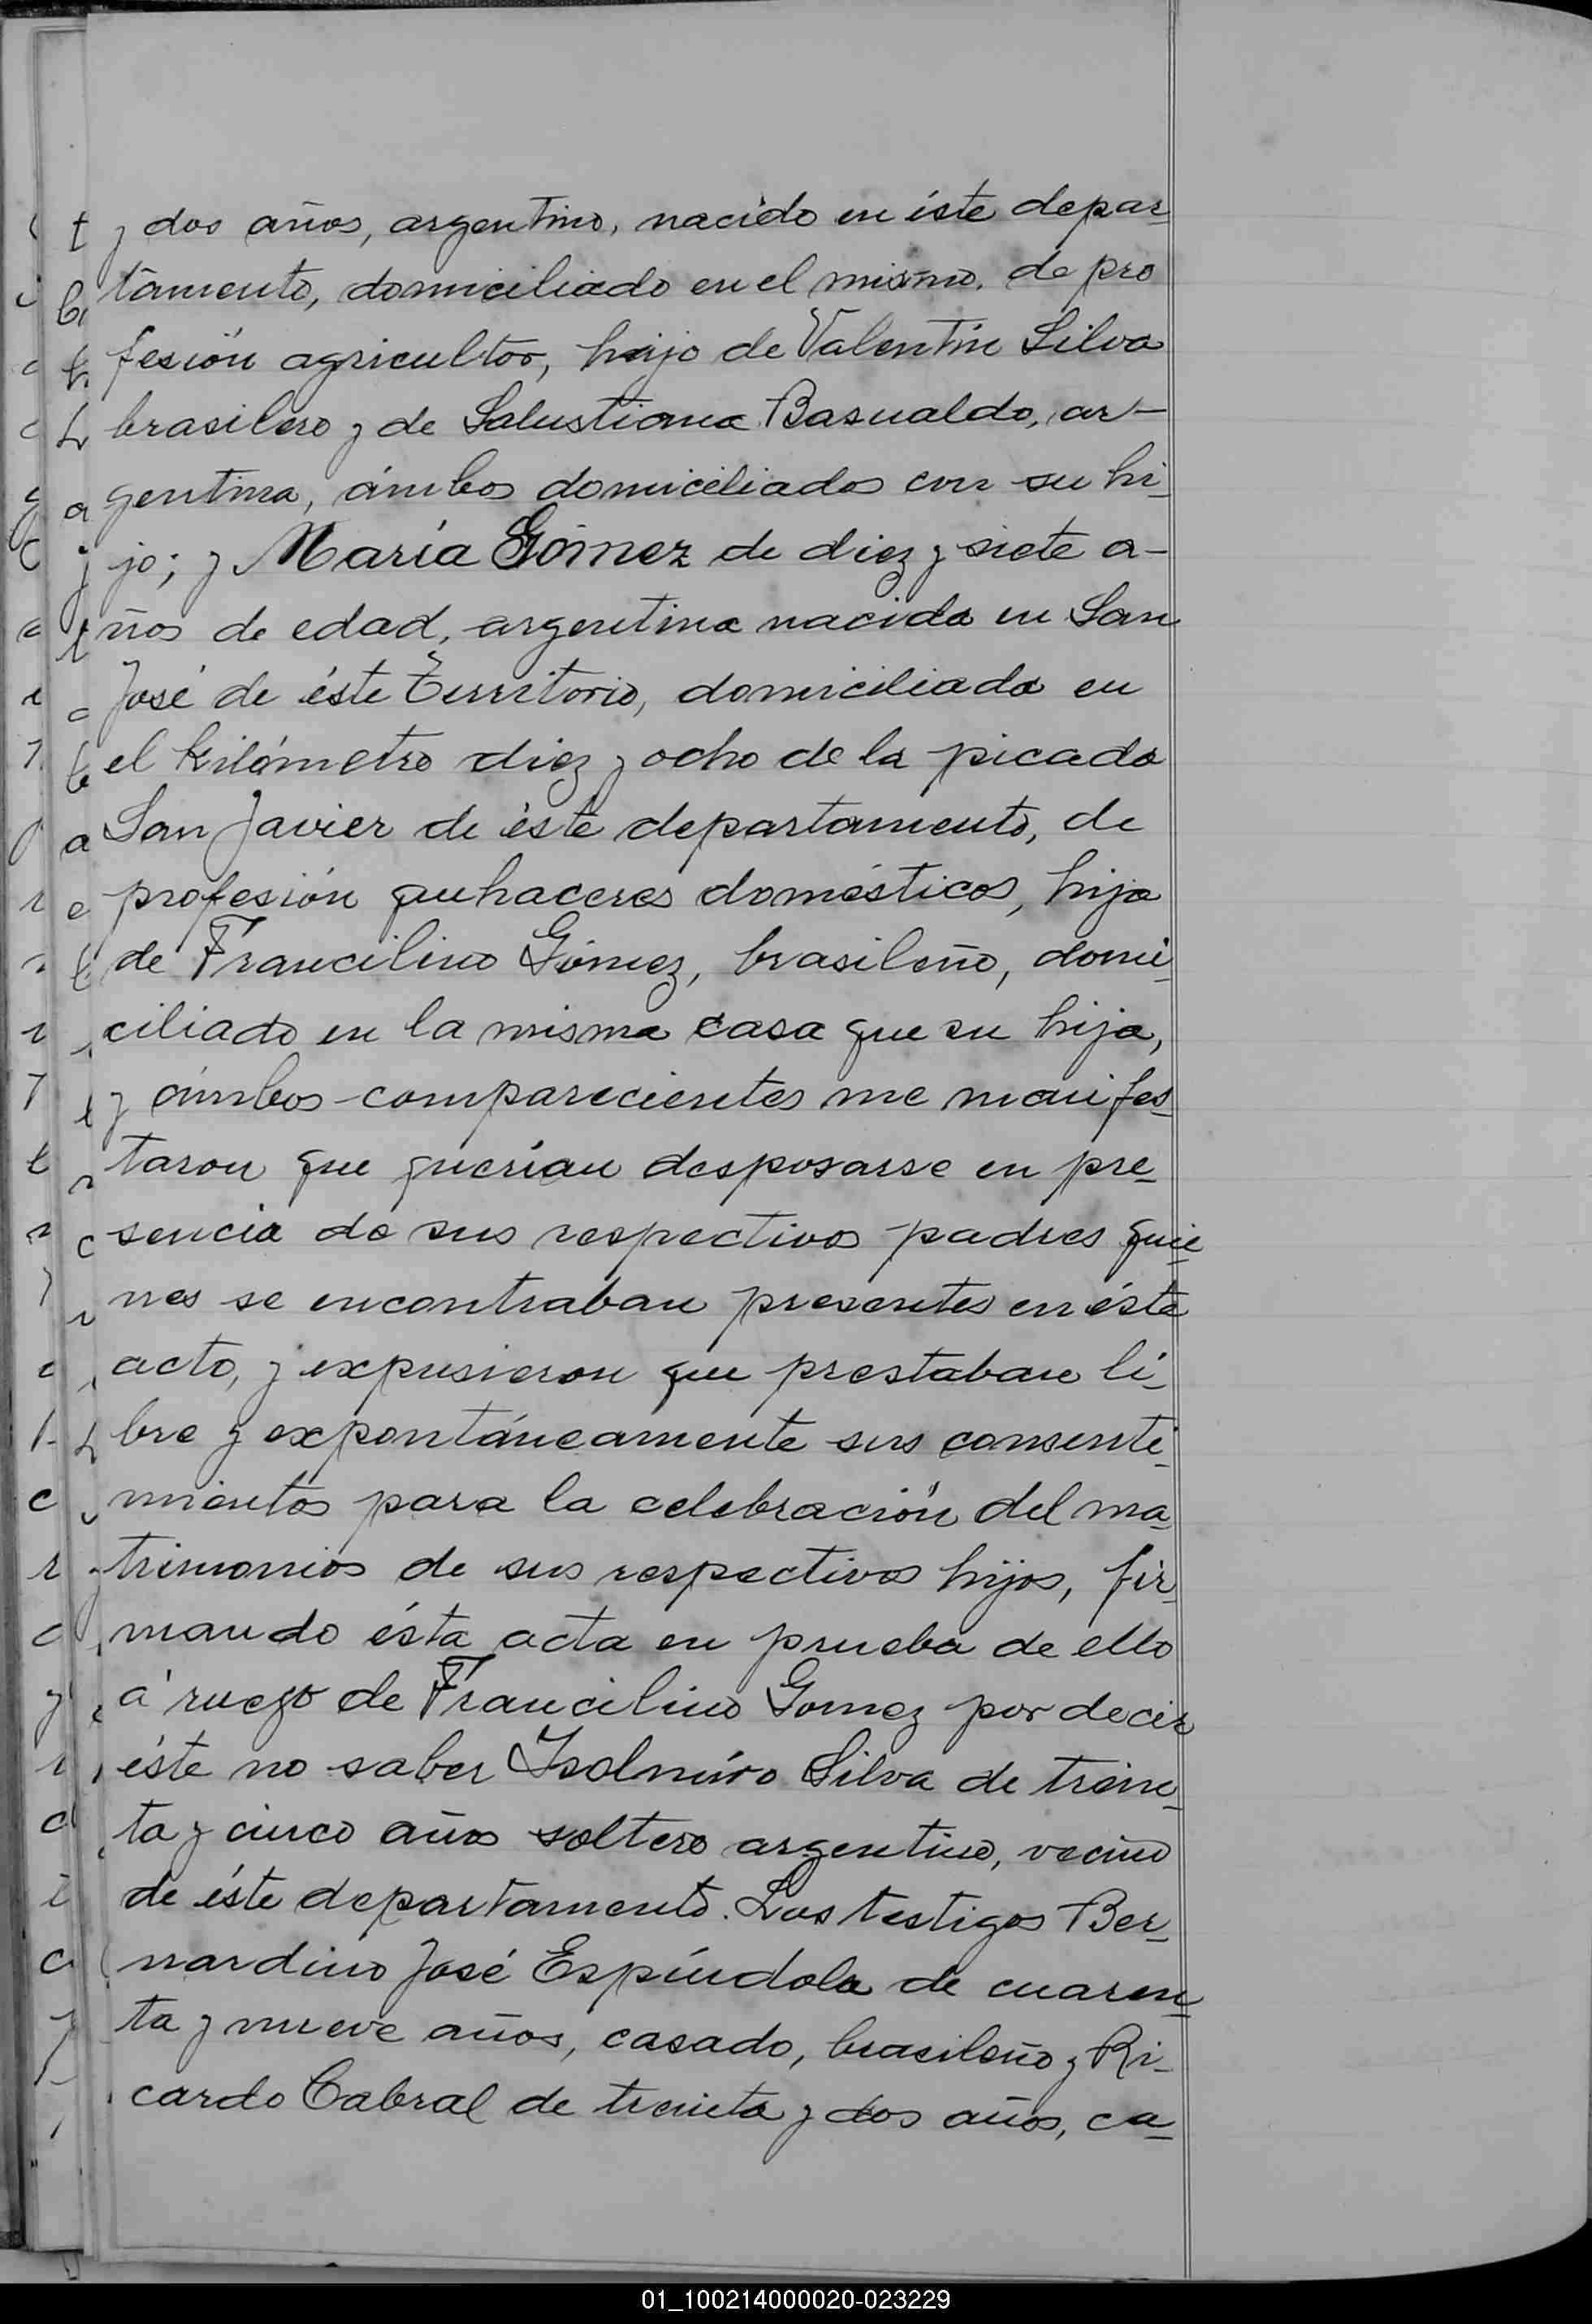 y dos años, argentino, nacido en éste depar_
tamento, domiciliado en el mismo, de pro
fesión agricultor, hijo de Valentín Silva
brasilero y de Salustiana Basualdo, ar-
gentina, ámbos domiciliados con su hi_
jo; y María Gómez de diez y siete a-
ños de edad, argentina nacida en San
José de éste Territorio, domiciliada en
el kilómetro diez y ocho de la picada
San Javier de éste departamento, de
profesión quehaceres domésticos, hija
de Francilino Gómez, brasileño, domi_
ciliado en la misma casa que su hija,
y ámbos comparecientes me manifes_
taron que querían desposarse en pre_
sencia de sus respectivos padres quie_
nes se encontraban presentes en éste
acto, y expusieron que prestaban li_
bre y expontáneamente sus consenti_
mientos para la celebración del ma_
trimonios de sus respectivos hijos, fir_
mando ésta acta en prueba de ello
á ruego de Francilino Gomez por decir
éste no saber Isolmiro Silva de trein_
ta y cinco años soltero argentino, vecino
de éste departamento. Los testigos Ber_
nardino José Espíndola de cuaren_
ta y nueve años, casado, brasileño y Ri_
cardo Cabral de treinta y dos años, ca_
01_100214000020-023229